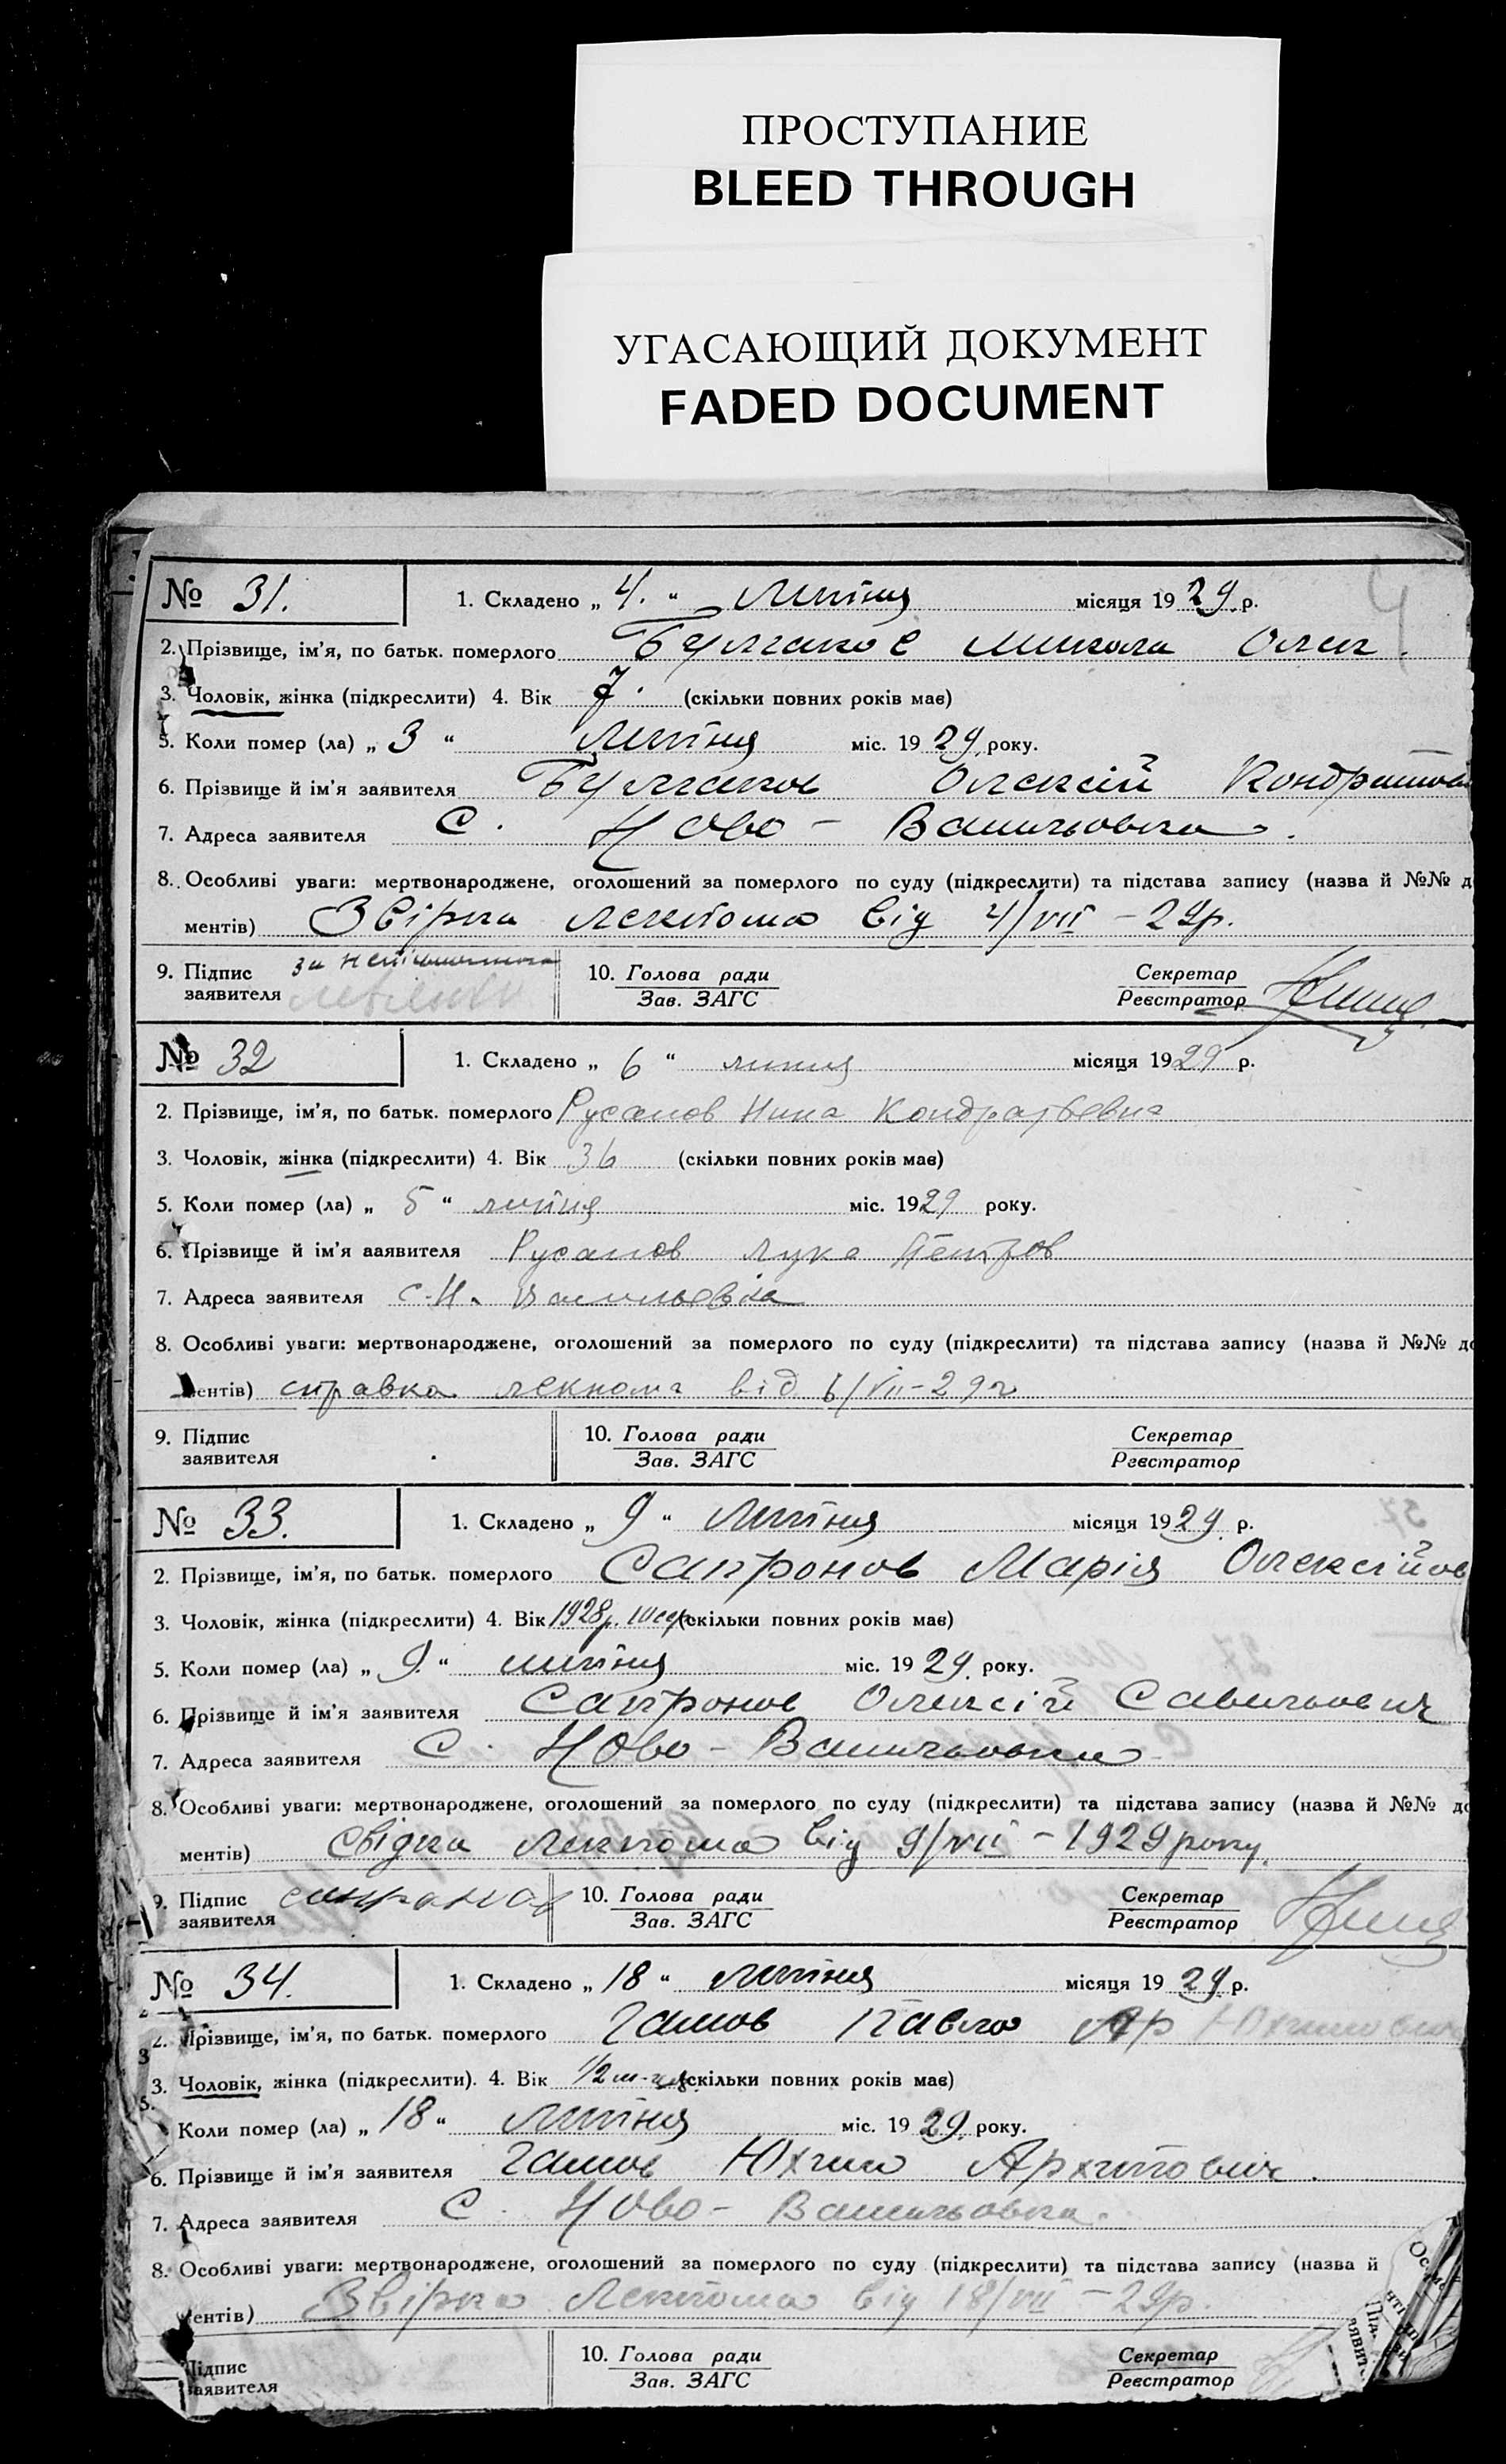 ПРОСТУПАНИЕ
BLEED THROUGH
УГАСАЮЩИЙ ДОКУМЕНТ
FADED DOCUMENT
4
№ 31. 1. Складено „ 4. “ Липня місяця 1929 р.
2. Прізвище, ім'я, по батьк. померлого Булгаков Микола Олек.
3. Чоловік, жінка (підкреслити) 4. Вік 7. (скільки повних років має)
5. Коли помер (ла) „ 3 “ Липня міс. 1929 року.
6. Прізвище й ім'я заявителя Булгаков Олексій Кондратов
7. Адреса заявителя С. Ново - Васильовка.
8. Особливі уваги: мертвонароджене, оголошений за померлого по суду (підкреслити) та підстава запису (назва й №№ д
ментів) Звірка лекпома від 4/VII - 29р.
9. Підпис заявителя за 10. Голова ради Зав. ЗАГС Секретар Реєстратор
№ 32 1. Складено „ 6 “ липня місяця 1929 р.
2. Прізвище, ім'я, по батьк. померлого Русанов Нина Кондратьевна
3. Чоловік, жінка (підкреслити) 4. Вік 36 (скільки повних років має)
5. Коли помер (ла) „ 5 “ липня міс. 1929 року.
6. Прізвище й ім'я заявителя Русанов Лука Петров
7. Адреса заявителя с. Н. Васильевка
8. Особливі уваги: мертвонароджене, оголошений за померлого по суду (підкреслити) та підстава запису (назва й №№ до
ментів) справка лекпома від 6/VII - 29 г
9. Підпис заявителя 10. Голова ради Зав. ЗАГС Секретар Реєстратор
№ 33. 1. Складено „ 9 “ Липня місяця 1929 р.
2. Прізвище, ім'я, по батьк. померлого Сапронов Марія Олексійов
3. Чоловік, жінка (підкреслити) 4. Вік 1928р. (скільки повних років має)
5. Коли помер (ла) „ 9. “ липня міс. 1929 року.
6. Прізвище й ім'я заявителя Сапронов Олексій Савельович
7. Адреса заявителя С. Ново - Васильовки
8. Особливі уваги: мертвонароджене, оголошений за померлого по суду (підкреслити) та підстава запису (назва й №№ до
ментів) Свідка Лекпома від 9/VII - 1929 року.
9. Підпис заявителя сапранов 10. Голова ради Зав. ЗАГС Секретар Реєстратор
№ 34. 1. Складено „ 18 “ Липня місяця 1929 р.
2. Прізвище, ім'я, по батьк. померлого Гамов Павло Ар Юхимович
3. Чоловік, жінка (підкреслити). 4. Вік 1/2 (скільки повних років має)
Коли помер (ла) „ 18 “ Липня міс. 1929 року.
6. Прізвище й ім'я заявителя Гамов Юхим Архипович.
7. Адреса заявителя С. Ново - Васильовка.
8. Особливі уваги: мертвонароджене, оголошений за померлого по суду (підкреслити) та підстава запису (назва й
ментів) Звірка Лекпома від 18/VII - 29р.
Підпис заявителя 10. Голова ради Зав. ЗАГС Секретар Реєстратор